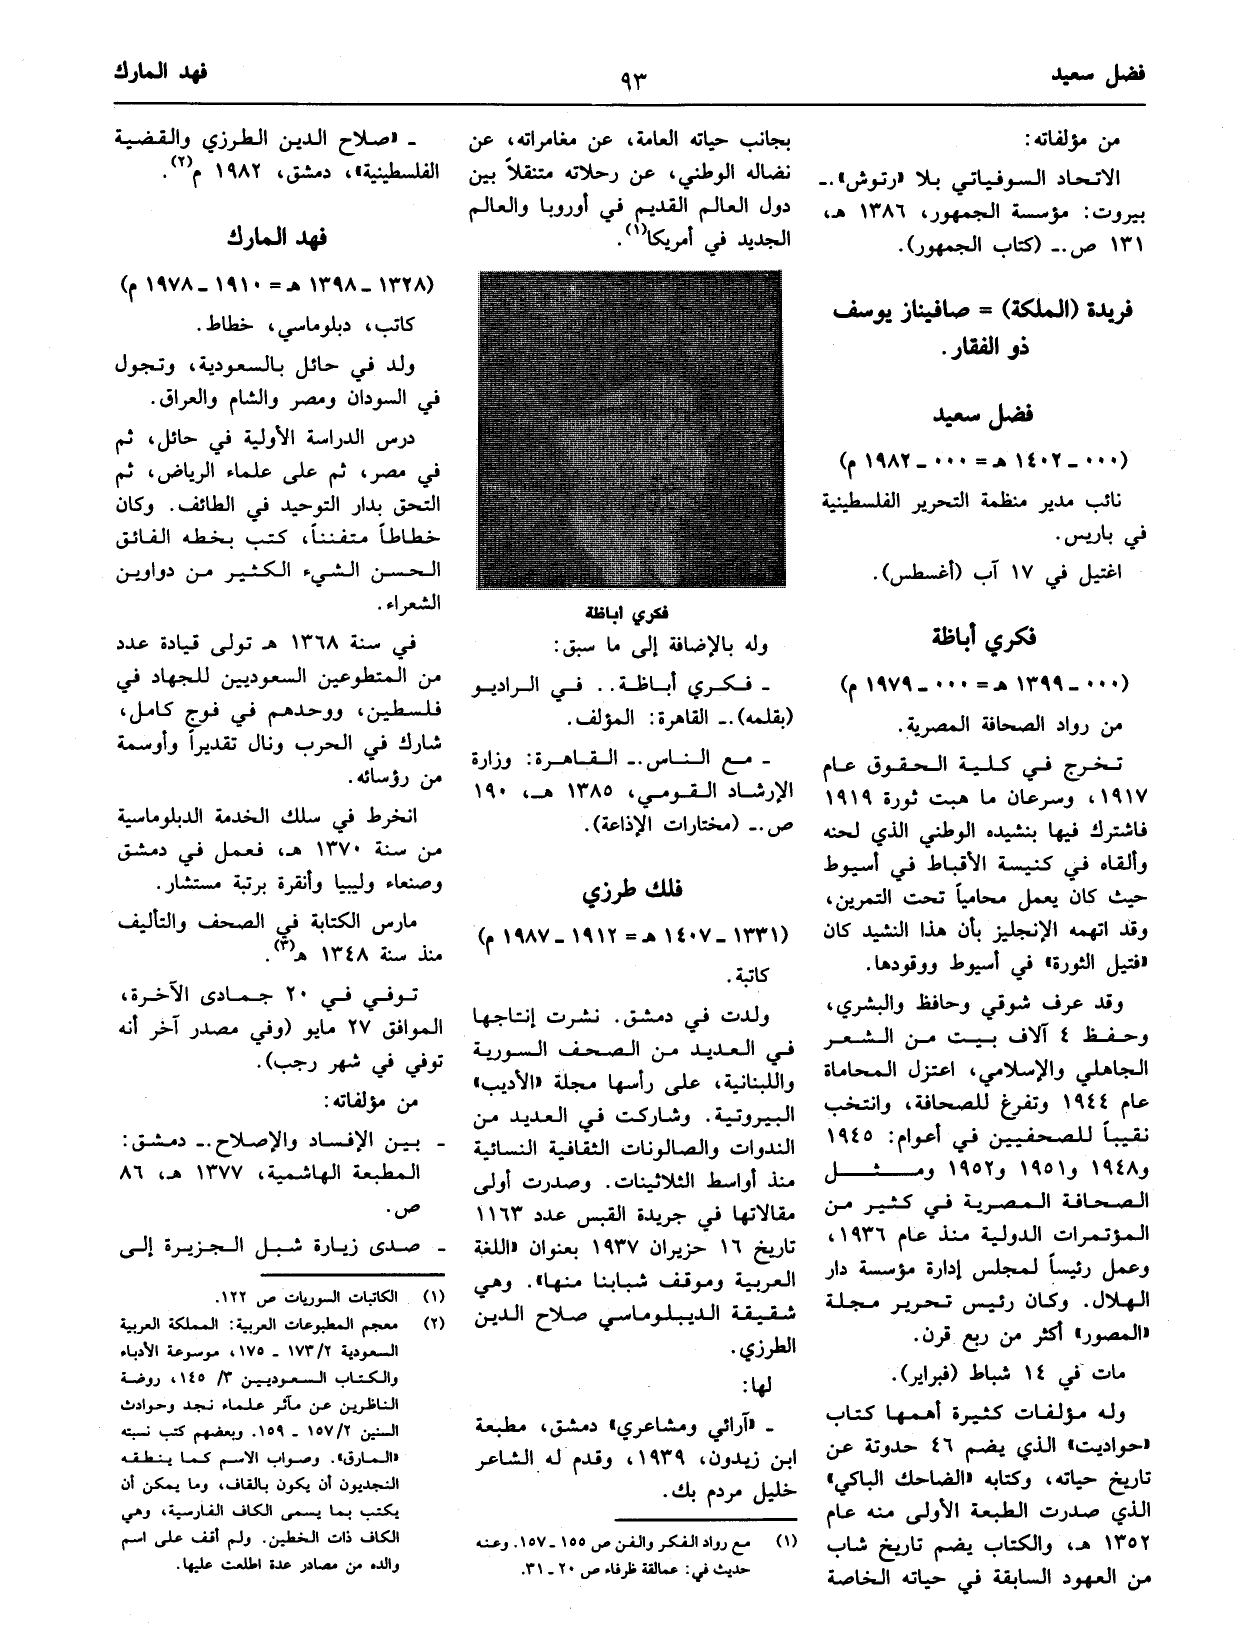 فضل سعيد
٩٣
فهد المارك
من مؤلفاته:
الاتحاد السوفياتي بلا «رتوش».ـ
بيروت: مؤسسة الجمهور، ١٣٨٦ هـ،
١٣١ ص.ـ (كتاب الجمهور).
فريدة (الملكة) = صافيناز يوسف
ذو الفقار.
فضل سعيد
(٠٠٠ ـ ١٤٠٢ هـ = ٠٠٠ ـ ١٩٨٢ م)
نائب مدير منظمة التحرير الفلسطينية
في باريس.
اغتيل في ١٧ آب (أغسطس).
فكري أباظة
(٠٠٠ ـ ١٣٩٩ هـ = ٠٠٠ ـ ١٩٧٩ م)
من رواد الصحافة المصرية.
تخرج في كلية الحقوق عام
١٩١٧، وسرعان ما هبت ثورة ١٩١٩
فاشترك فيها بنشيده الوطني الذي لحنه
وألقاه في كنيسة الأقباط في أسيوط
حيث كان يعمل محامياً تحت التمرين،
وقد اتهمه الإنجليز بأن هذا النشيد كان
«فتيل الثورة» في أسيوط ووقودها.
وقد عرف شوقي وحافظ والبشري،
وحفظ ٤ آلاف بيت من الشعر
الجاهلي والإسلامي، اعتزل المحاماة
عام ١٩٤٤ وتفرغ للصحافة، وانتخب
نقيباً للصحفيين في أعوام: ١٩٤٥
و١٩٤٨ و١٩٥١ و١٩٥٢ ومثل
الصحافة المصرية في كثير من
المؤتمرات الدولية منذ عام ١٩٣٦،
وعمل رئيساً لمجلس إدارة مؤسسة دار
الهلال. وكان رئيس تحرير مجلة
«المصور» أكثر من ربع قرن.
مات في ١٤ شباط (فبراير).
وله مؤلفات كثيرة أهمها كتاب
«حواديت» الذي يضم ٤٦ حدوتة عن
تاريخ حياته، وكتابه «الضاحك الباكي»
الذي صدرت الطبعة الأولى منه عام
١٣٥٢ هـ، والكتاب يضم تاريخ شاب
من العهود السابقة في حياته الخاصة
بجانب حياته العامة، عن مغامراته، عن
نضاله الوطني، عن رحلاته متنقلاً بين
دول العالم القديم في أوروبا والعالم
الجديد في أمريكا(١).
فكري أباظة
وله بالإضافة إلى ما سبق:
ـ فكري أباظة.. في الراديو
(بقلمه).ـ القاهرة: المؤلف.
ـ مع الناس.ـ القاهرة: وزارة
الإرشاد القومي، ١٣٨٥ هـ، ١٩٠
ص.ـ (مختارات الإذاعة).
فلك طرزي
(١٣٣١ ـ ١٤٠٧ هـ = ١٩١٢ ـ ١٩٨٧ م)
كاتبة.
ولدت في دمشق. نشرت إنتاجها
في العديد من الصحف السورية
واللبنانية، على رأسها مجلة «الأديب»
البيروتية. وشاركت في العديد من
الندوات والصالونات الثقافية النسائية
منذ أواسط الثلاثينات. وصدرت أولى
مقالاتها في جريدة القبس عدد ١١٦٣
تاريخ ١٦ حزيران ١٩٣٧ بعنوان «اللغة
العربية وموقف شبابنا منها». وهي
شقيقة الديبلوماسي صلاح الدين
الطرزي.
لها:
ـ «آرائي ومشاعري» دمشق، مطبعة
ابن زيدون، ١٩٣٩، وقدم له الشاعر
خليل مردم بك.
(١) مع رواد الفكر والفن ص ١٥٥ ـ ١٥٧. وعنه
حديث في: عمالقة ظرفاء ص ٢٠ ـ ٣١.
ـ «صلاح الدين الطرزي والقضية
الفلسطينية»، دمشق، ١٩٨٢ م(٢).
فهد المارك
(١٣٢٨ ـ ١٣٩٨ هـ = ١٩١٠ ـ ١٩٧٨ م)
كاتب، دبلوماسي، خطاط.
ولد في حائل بالسعودية، وتجول
في السودان ومصر والشام والعراق.
درس الدراسة الأولية في حائل، ثم
في مصر، ثم على علماء الرياض، ثم
التحق بدار التوحيد في الطائف. وكان
خطاطاً متفنناً، كتب بخطه الفائق
الحسن الشيء الكثير من دواوين
الشعراء.
في سنة ١٣٦٨ هـ تولى قيادة عدد
من المتطوعين السعوديين للجهاد في
فلسطين، ووحدهم في فوج كامل،
شارك في الحرب ونال تقديراً وأوسمة
من رؤسائه.
انخرط في سلك الخدمة الدبلوماسية
من سنة ١٣٧٠ هـ، فعمل في دمشق
وصنعاء وليبيا وأنقرة برتبة مستشار.
مارس الكتابة في الصحف والتأليف
منذ سنة ١٣٤٨ هـ(٣).
توفي في ٢٠ جمادى الآخرة،
الموافق ٢٧ مايو (وفي مصدر آخر أنه
توفي في شهر رجب).
من مؤلفاته:
ـ بين الإفساد والإصلاح.ـ دمشق:
المطبعة الهاشمية، ١٣٧٧ هـ، ٨٦
ص.
ـ صدى زيارة شبل الجزيرة إلى
(١) الكاتبات السوريات ص ١٢٢.
(٢) معجم المطبوعات العربية: المملكة العربية
السعودية ١٧٣/٢ ـ ١٧٥، موسوعة الأدباء
والكتاب السعوديين ٣/ ١٤٥، روضة
الناظرين عن مآثر علماء نجد وحوادث
السنين ١٥٧/٢ ـ ١٥٩. وبعضهم كتب نسبته
«المارق». وصواب الاسم كما ينطقه
النجديون أن يكون بالقاف، وما يمكن أن
يكتب بما يسمى الكاف الفارسية، وهي
الكاف ذات الخطين. ولم أقف على اسم
والده من مصادر عدة اطلعت عليها.